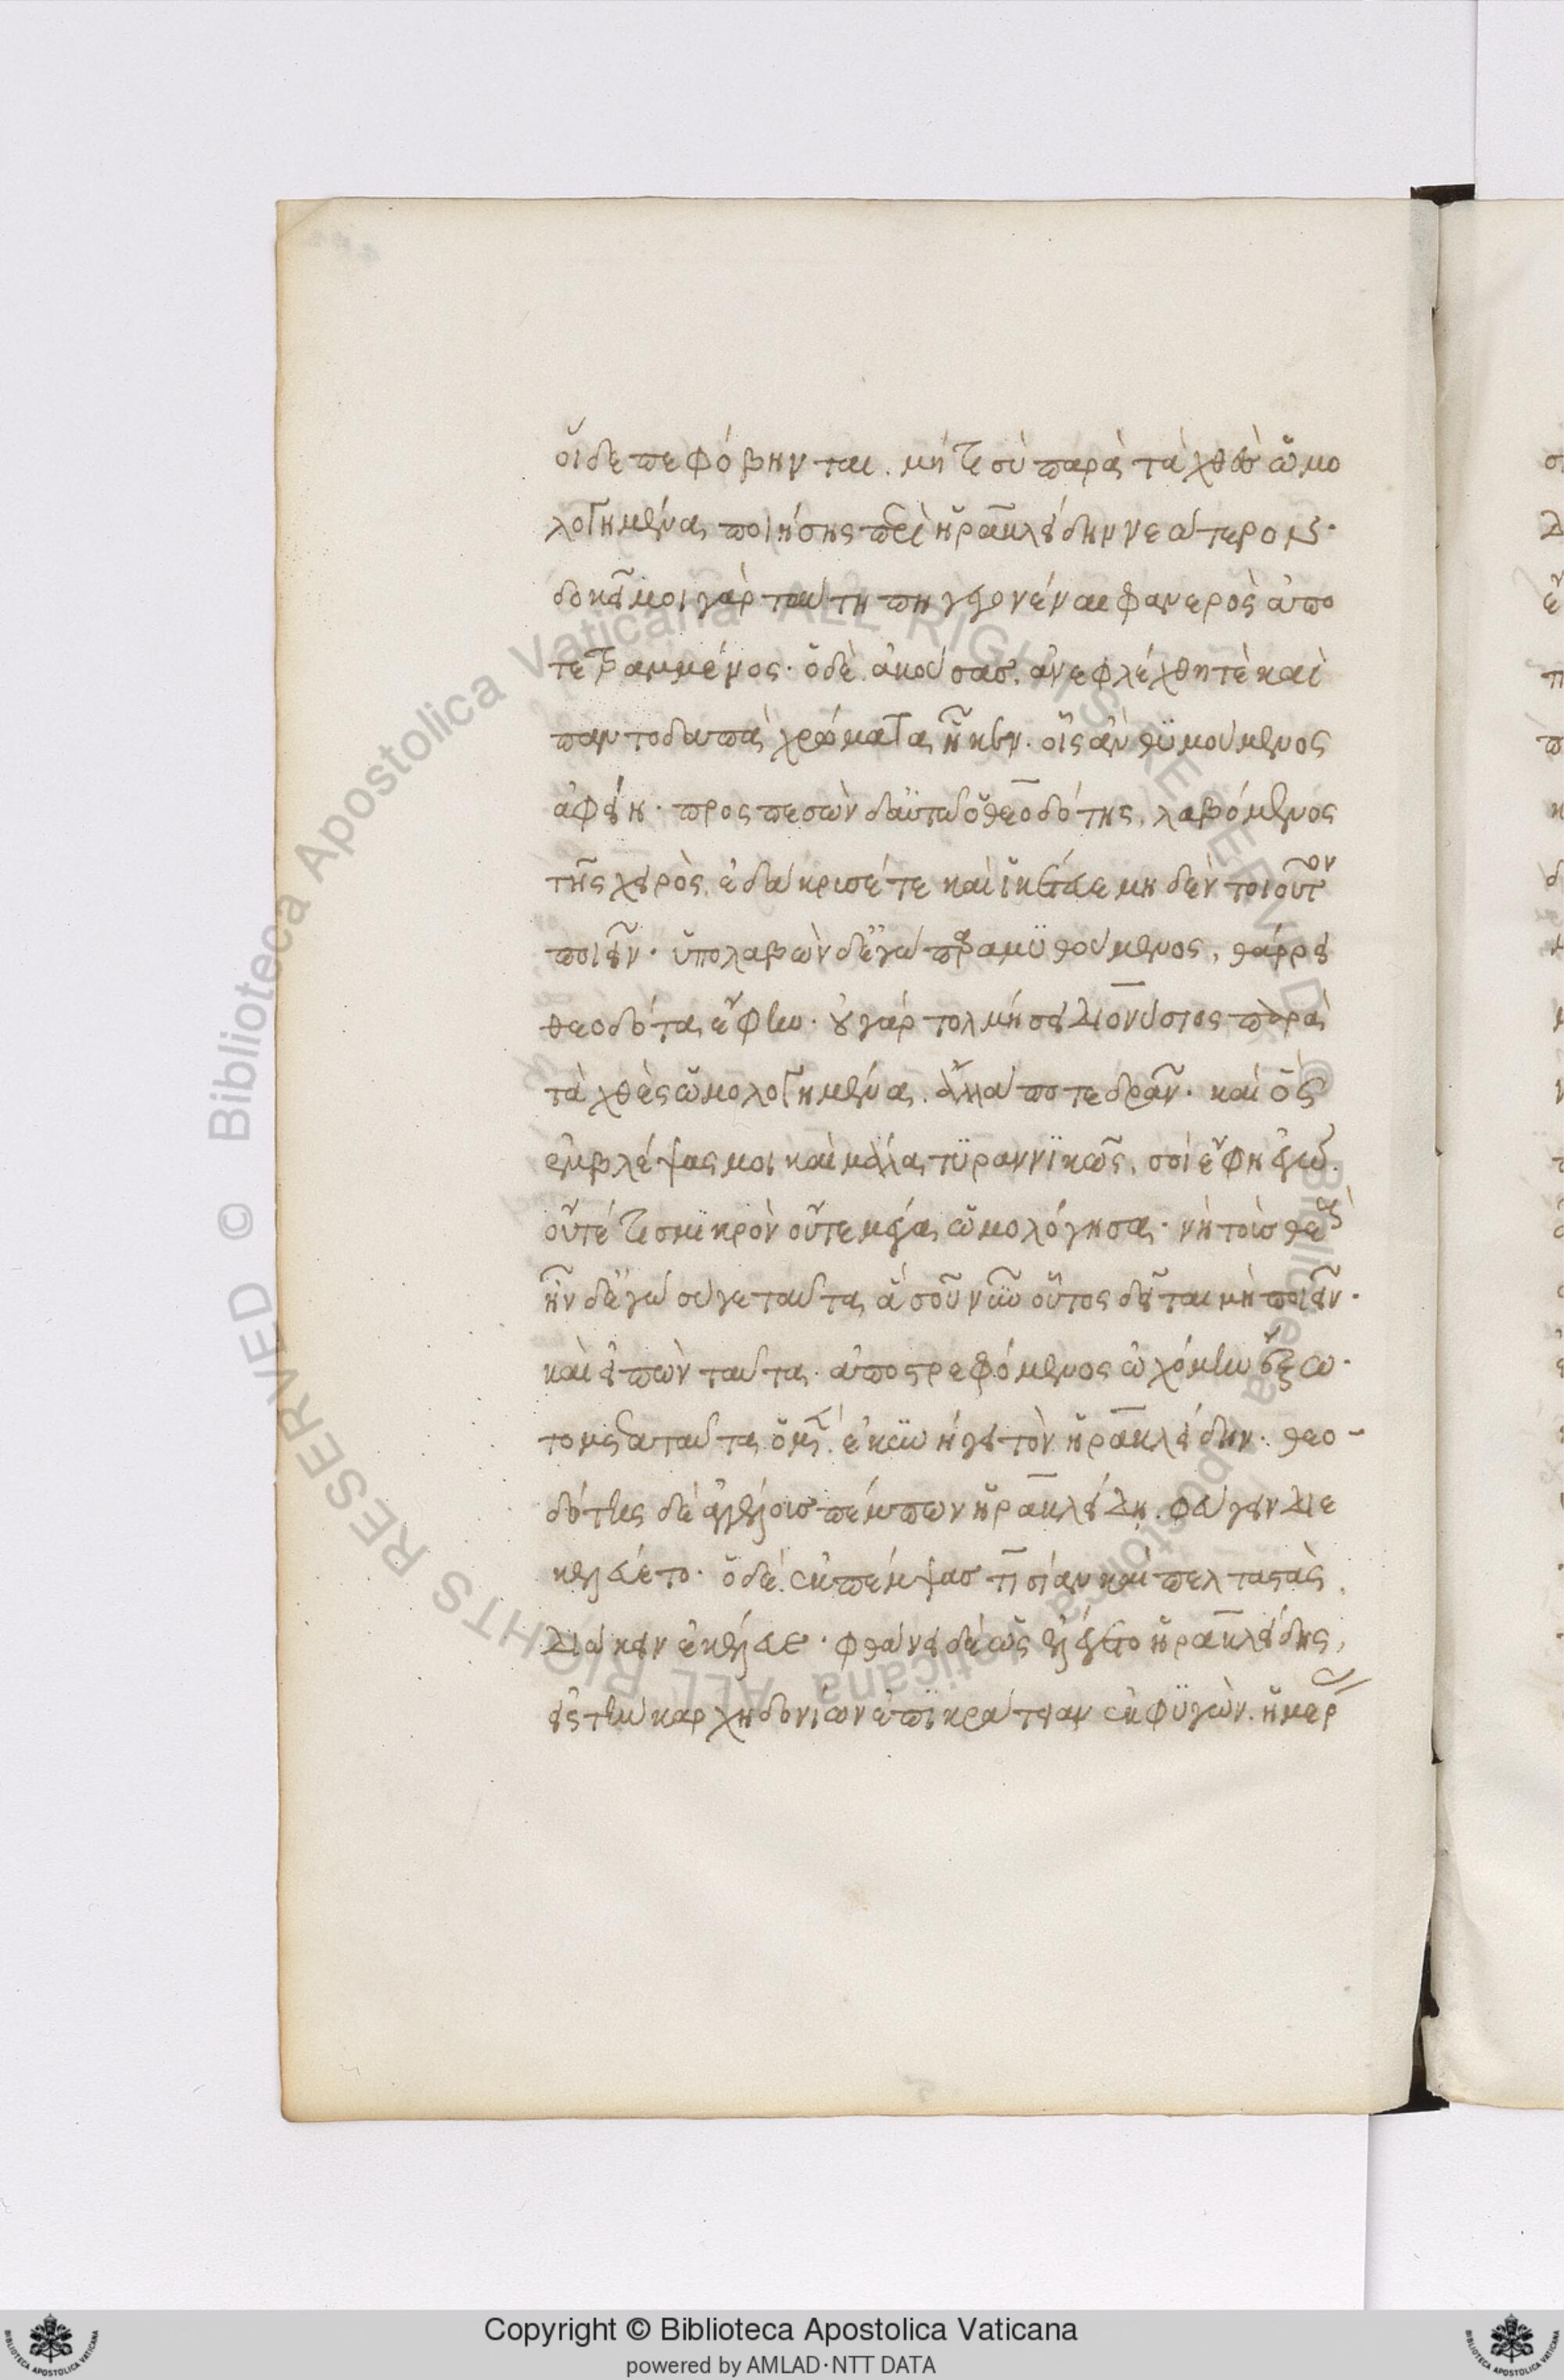 οἵδε πεφόβηνται. μή τι σὺ παρὰ τὰ χθὲς ὡμο
λογημένα ποιήσῃς περὶ ἡρακλείδην νεώτερον·
δοκεῖ μοι γὰρ ταύτη πη γεγονέναι φανερὸς ἀπο
τετραμμένος· ὁ δὲ ἀκούσας, ἀνεφλέχθη τὲ καὶ
παντοδαπὰ χρώματα ἧκεν· οἷς ἂν θυμούμενος
ἀφείη· προσπεσὼν δ' αὐτῷ ὁ θεοδότης, λαβόμενος
τῆς χειρὸς ἐδάκρυσέ τε καὶ ἱκέτευε μηδὲν τοιοῦτον
ποιεῖν· ὑπολαβὼν δ' ἐγὼ παραμυθούμενος, θάρρει
θεοδότα, ἔφην· οὐ γὰρ τολμήσει διονύσιος παρὰ
τὰ χθὲς ὡμολογημένα ἄλλά ποτε δρᾶν· καὶ ὃς
ἐμβλέψας μοι καὶ μάλα τυραννικῶς, σοὶ ἔφη ἐγὼ
οὔτέ τι σμικρὸν οὔτε μέγα ὡμολόγησα· νὴ τοὺς θεοὺς
ἦν δ' ἐγὼ σύ γε ταῦτα ἃ σοῦ νῦν οὗτος δεῖται μὴ ποιεῖν·
καὶ εἰπὼν ταῦτα ἀποστρεφόμενος ᾠχόμην ἔξω·
τὸ μετὰ ταῦτα ὁ μὲν ἐκυνήγει τὸν ἡρακλείδην· θεο-
δότης δὲ ἀγγέλους πέμπων ἡρακλείδῃ φεύγειν διε
κελεύετο· ὁ δὲ ἐκπέμψας τισίαν καὶ πελταστὰς
διώκειν ἐκέλευε· φθάνει δὲ ὡς ἐλέγετο ἡρακλείδης,
εἰς τὴν καρχηδονίων ἐπικράτειαν ἐκφυγὼν. ἡμέρ
Copyright © Biblioteca Apostolica Vaticana
powered by AMLAD·NTT DATA